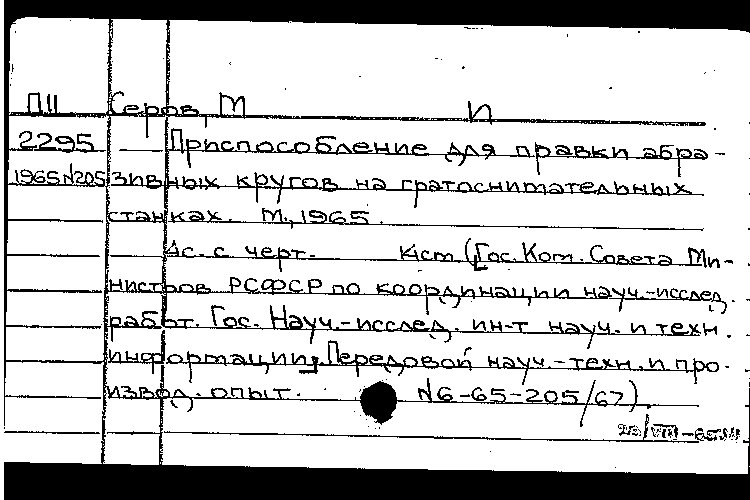 П11 Серов, М И
2295 Приспособление для правки абра-
1965 N205 зивных кругов на гратоснимательных
станках. М., 1965.
4с. с черт. (Гос. Ком. Совета Ми-
нистров РСФСР по координации науч.-исслед.
работ. Гос. Науч.-исслед. ин-т науч. и техн.
информации. Передовой науч.-техн. и про-
извод. опыт. N6-65-205/67).